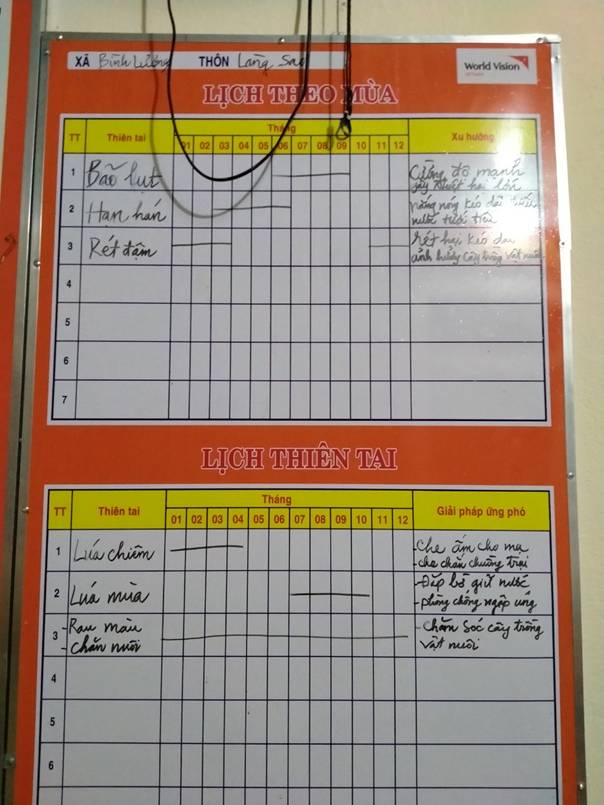 XÃ Bình Lương THÔN Làng Sao
World Vision
LỊCH THEO MÙA
TT Thiên tai Tháng Xu hướng
01 02 03 04 05 06 07 08 09 10 11 12
1 Bão lụt Cường độ mạnh
gây thiệt hại lớn
2 Hạn hán nắng nóng kéo dài thiếu
nước tưới tiêu
3 Rét đậm rét hại kéo dài
ảnh hưởng cây trồng vật nuôi
4
5
6
7
LỊCH THIÊN TAI
TT Thiên tai Tháng Giải pháp ứng phó
01 02 03 04 05 06 07 08 09 10 11 12
1 Lúa chiêm - Che ấm cho mạ
- che chắn chuồng trại
2 Lúa mùa - Đắp bờ giữ nước
- phòng chống ngập úng
3 - Rau màu - Chăm sóc cây trồng
- chăn nuôi vật nuôi
4
5
6